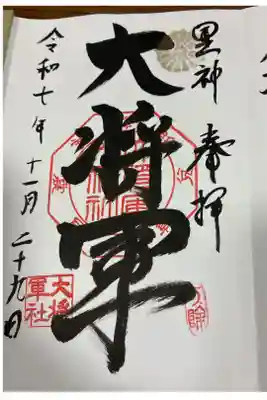 星神 奉拝
大将軍
令和七年 十一月 二十九日
大将
軍社